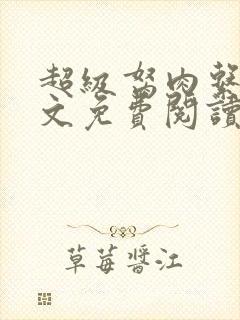 超級驽肉
文免費閱讀
草莓醬江